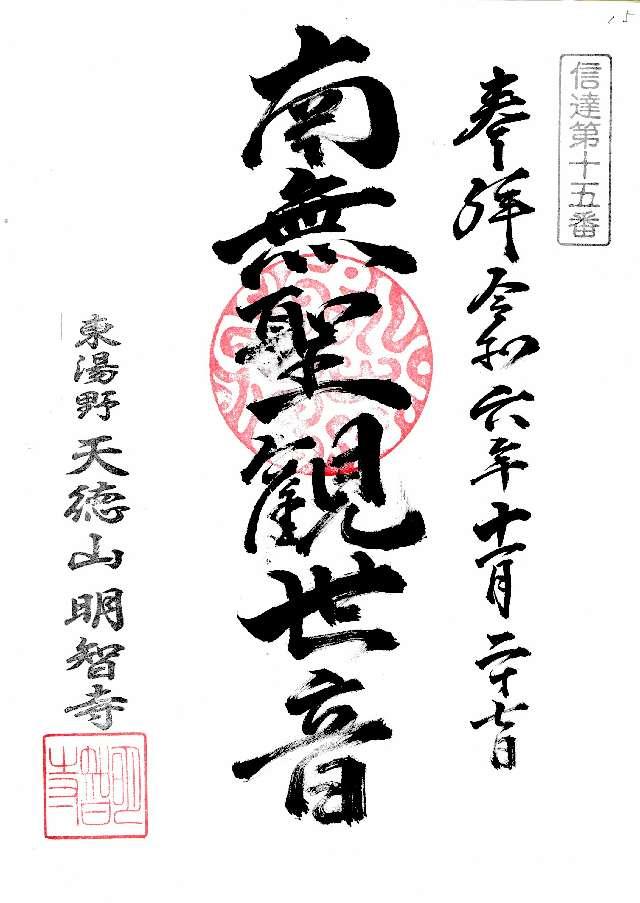 15
信達第十五番
奉拝 令和六年十一月二十七日
南無聖観世音
東湯野 天徳山 明智寺
明智寺